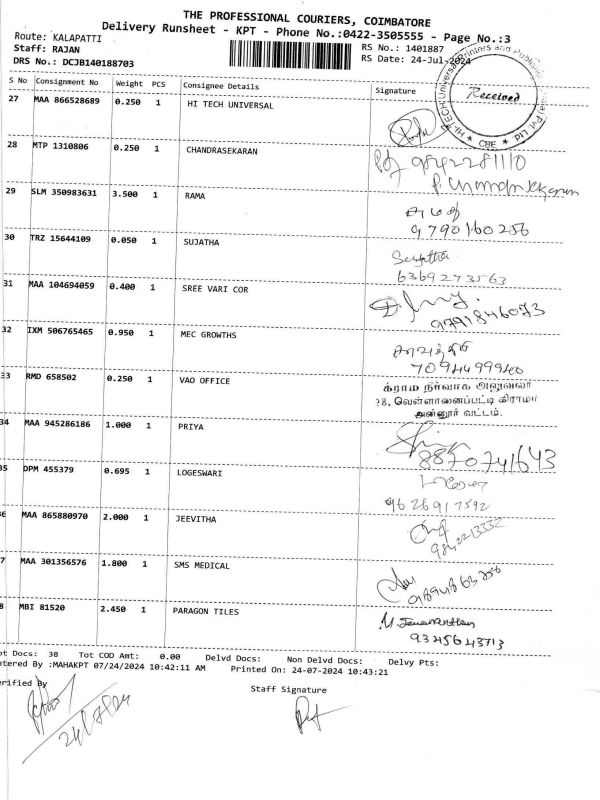 THE PROFESSIONAL COURIERS, COIMBATORE
Delivery Runsheet - KPT - Phone No.:0422-3505555 - Page No.:3
Route: KALAPATTI
Staff: RAJAN
DRS No.: DCJB140188703
RS No.: 1401887
RS Date: 24-Jul-2024
S No Consignment No Weight PCS Consignee Details Signature
Received
CBE
27 MAA 866528689 0.250 1 HI TECH UNIVERSAL
28 MTP 1310806 0.250 1 CHANDRASEKARAN
9842281110
29 SLM 350983631 3.500 1 RAMA
9790160256
30 TRZ 15644109 0.050 1 SUJATHA
Sujatha
6369273563
31 MAA 104694059 0.400 1 SREE VARI COR
9791846073
32 IXM 506765465 0.950 1 MEC GROWTHS
7094499940
33 RMD 658502 0.250 1 VAO OFFICE
கிராம நிர்வாக அலுவலர்
28, வெள்ளானைப்பட்டி கிராமம்
அன்னூர் வட்டம்.
34 MAA 945286186 1.000 1 PRIYA
8870741643
35 DPM 455379 0.695 1 LOGESWARI
9626917592
36 MAA 865880970 2.000 1 JEEVITHA
9842213332
7 MAA 301356576 1.800 1 SMS MEDICAL
8 MBI 81520 2.450 1 PARAGON TILES
9345643713
ot Docs: 38 Tot COD Amt: 0.00 Delvd Docs: Non Delvd Docs: Delvy Pts:
ntered By :MAHAKPT 07/24/2024 10:42:11 AM Printed On: 24-07-2024 10:43:21
erified By
Staff Signature